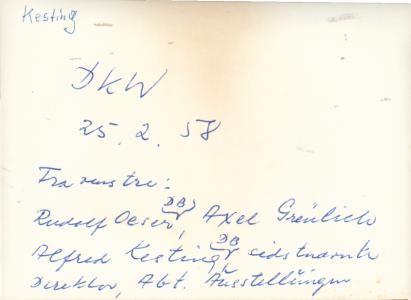 Kesting
DKW
25. 2. 58
Fra venstre:
DB
Rudolf Oeser, Axel Greülich
DB
Alfred Kesting, sidstnævnte
Direktor, Abt. Ausstellüngen